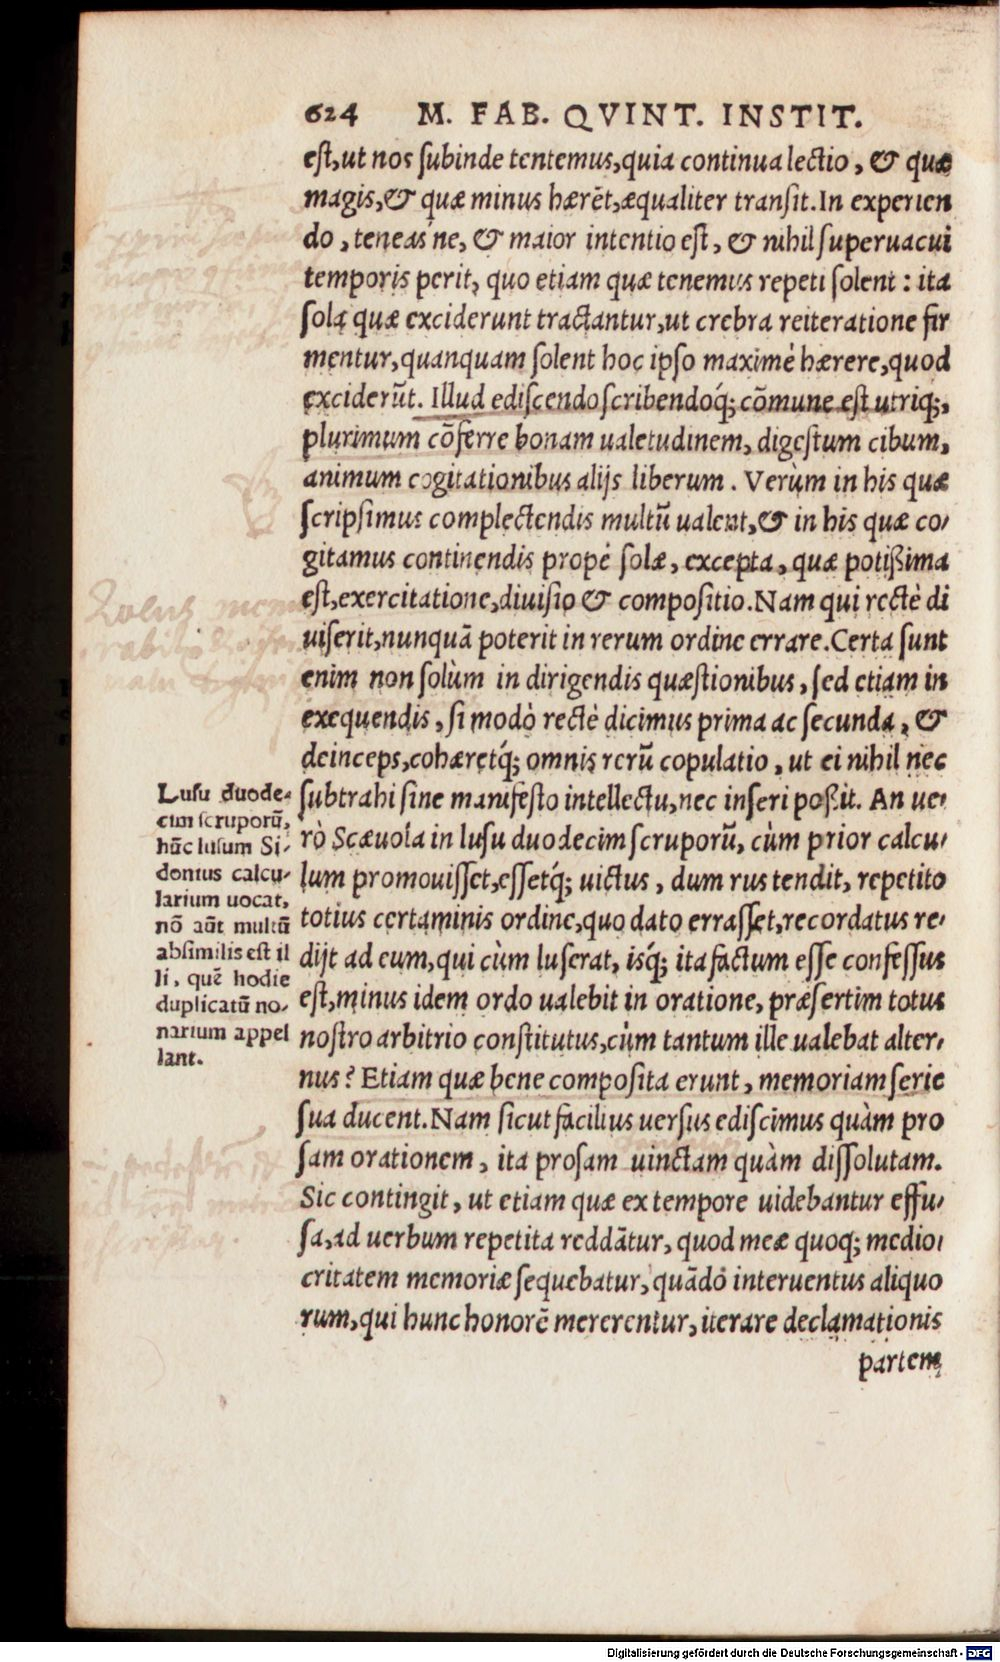 624 M. FAB. QVINT. INSTIT.
est, ut nos subinde tentemus, quia continua lectio, & quæ
magis, & quæ minus hærēt, æqualiter transit. In experien
do, teneas ne, & maior intentio est, & nihil superuacui
temporis perit, quo etiam quæ tenemus repeti solent : ita
sola quæ exciderunt tractantur, ut crebra reiteratione fir
mentur, quanquam solent hoc ipso maximè hærere, quod
exciderūt. Illud ediscendo scribendoq́; cōmune est utriq;,
plurimum cōferre bonam ualetudinem, digestum cibum,
animum cogitationibus alijs liberum. Verùm in his quæ
scripsimus complectendis multū ualent, & in his quæ co-
gitamus continendis propè solæ, excepta, quæ potißima
est, exercitatione, diuisio & compositio. Nam qui rectè di
uiserit, nunquā poterit in rerum ordine errare. Certa sunt
enim non solùm in dirigendis quæstionibus, sed etiam in
exequendis, si modò rectè dicimus prima ac secunda, &
deinceps, cohæretq́; omnis rerū copulatio, ut ei nihil nec
subtrahi sine manifesto intellectu, nec inseri poßit. An ue-
rò Scæuola in lusu duodecim scruporū, cùm prior calcu-
lum promouisset, essetq́; uictus, dum rus tendit, repetito
totius certaminis ordine, quo dato errasset, recordatus re-
dijt ad eum, qui cùm luserat, isq́; ita factum esse confessus
est, minus idem ordo ualebit in oratione, præsertim totus
nostro arbitrio constitutus, cùm tantum ille ualebat alter-
nus? Etiam quæ bene composita erunt, memoriam serie
sua ducent. Nam sicut facilius uersus ediscimus quàm pro
sam orationem, ita prosam uinctam quàm dissolutam.
Sic contingit, ut etiam quæ ex tempore uidebantur effu-
sa, ad uerbum repetita reddātur, quod meæ quoq; medio-
critatem memoriæ sequebatur, quādo interuentus aliquo
rum, qui hunc honorē mererentur, iterare declamationis
partem
Lusu duode-
cim scruporū,
hūc lusum Si-
donius calcu-
larium uocat,
nō aūt multū
absimilis est il
li, quē hodie
duplicatū no-
narium appel
lant.
Digitalisierung gefördert durch die Deutsche Forschungsgemeinschaft - DFG